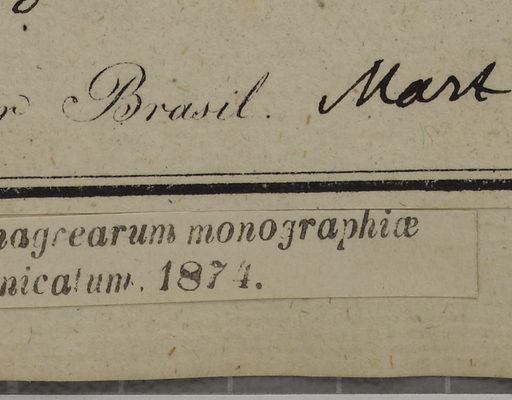 r Brasil. Mart
nagrearum monographiæ
nicatum. 1874.